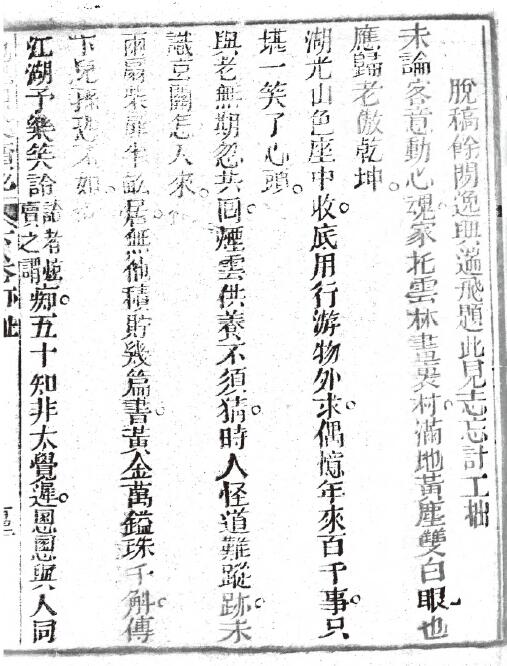 脫稿餘閒逸興遄飛題此見志忘計工拙
未論客意動心魂家托雲林畫裏村滿地黃塵雙白眼也
應歸老傲乾坤
湖光山色座中收底用行游物外求偶憶年來百千事只
堪一笑了心頭
與老無期忽共回煙雲供養不須猜時人怪道難蹤跡未
識 關怎人來
兩扇柴扉半畝居無他積貯幾篇書黃金萬鎰珠千斛傳
下兒孫恐不如
江湖予樂笑詅詅者遽賣之謂痴五十知非太覺遲悤悤與人同